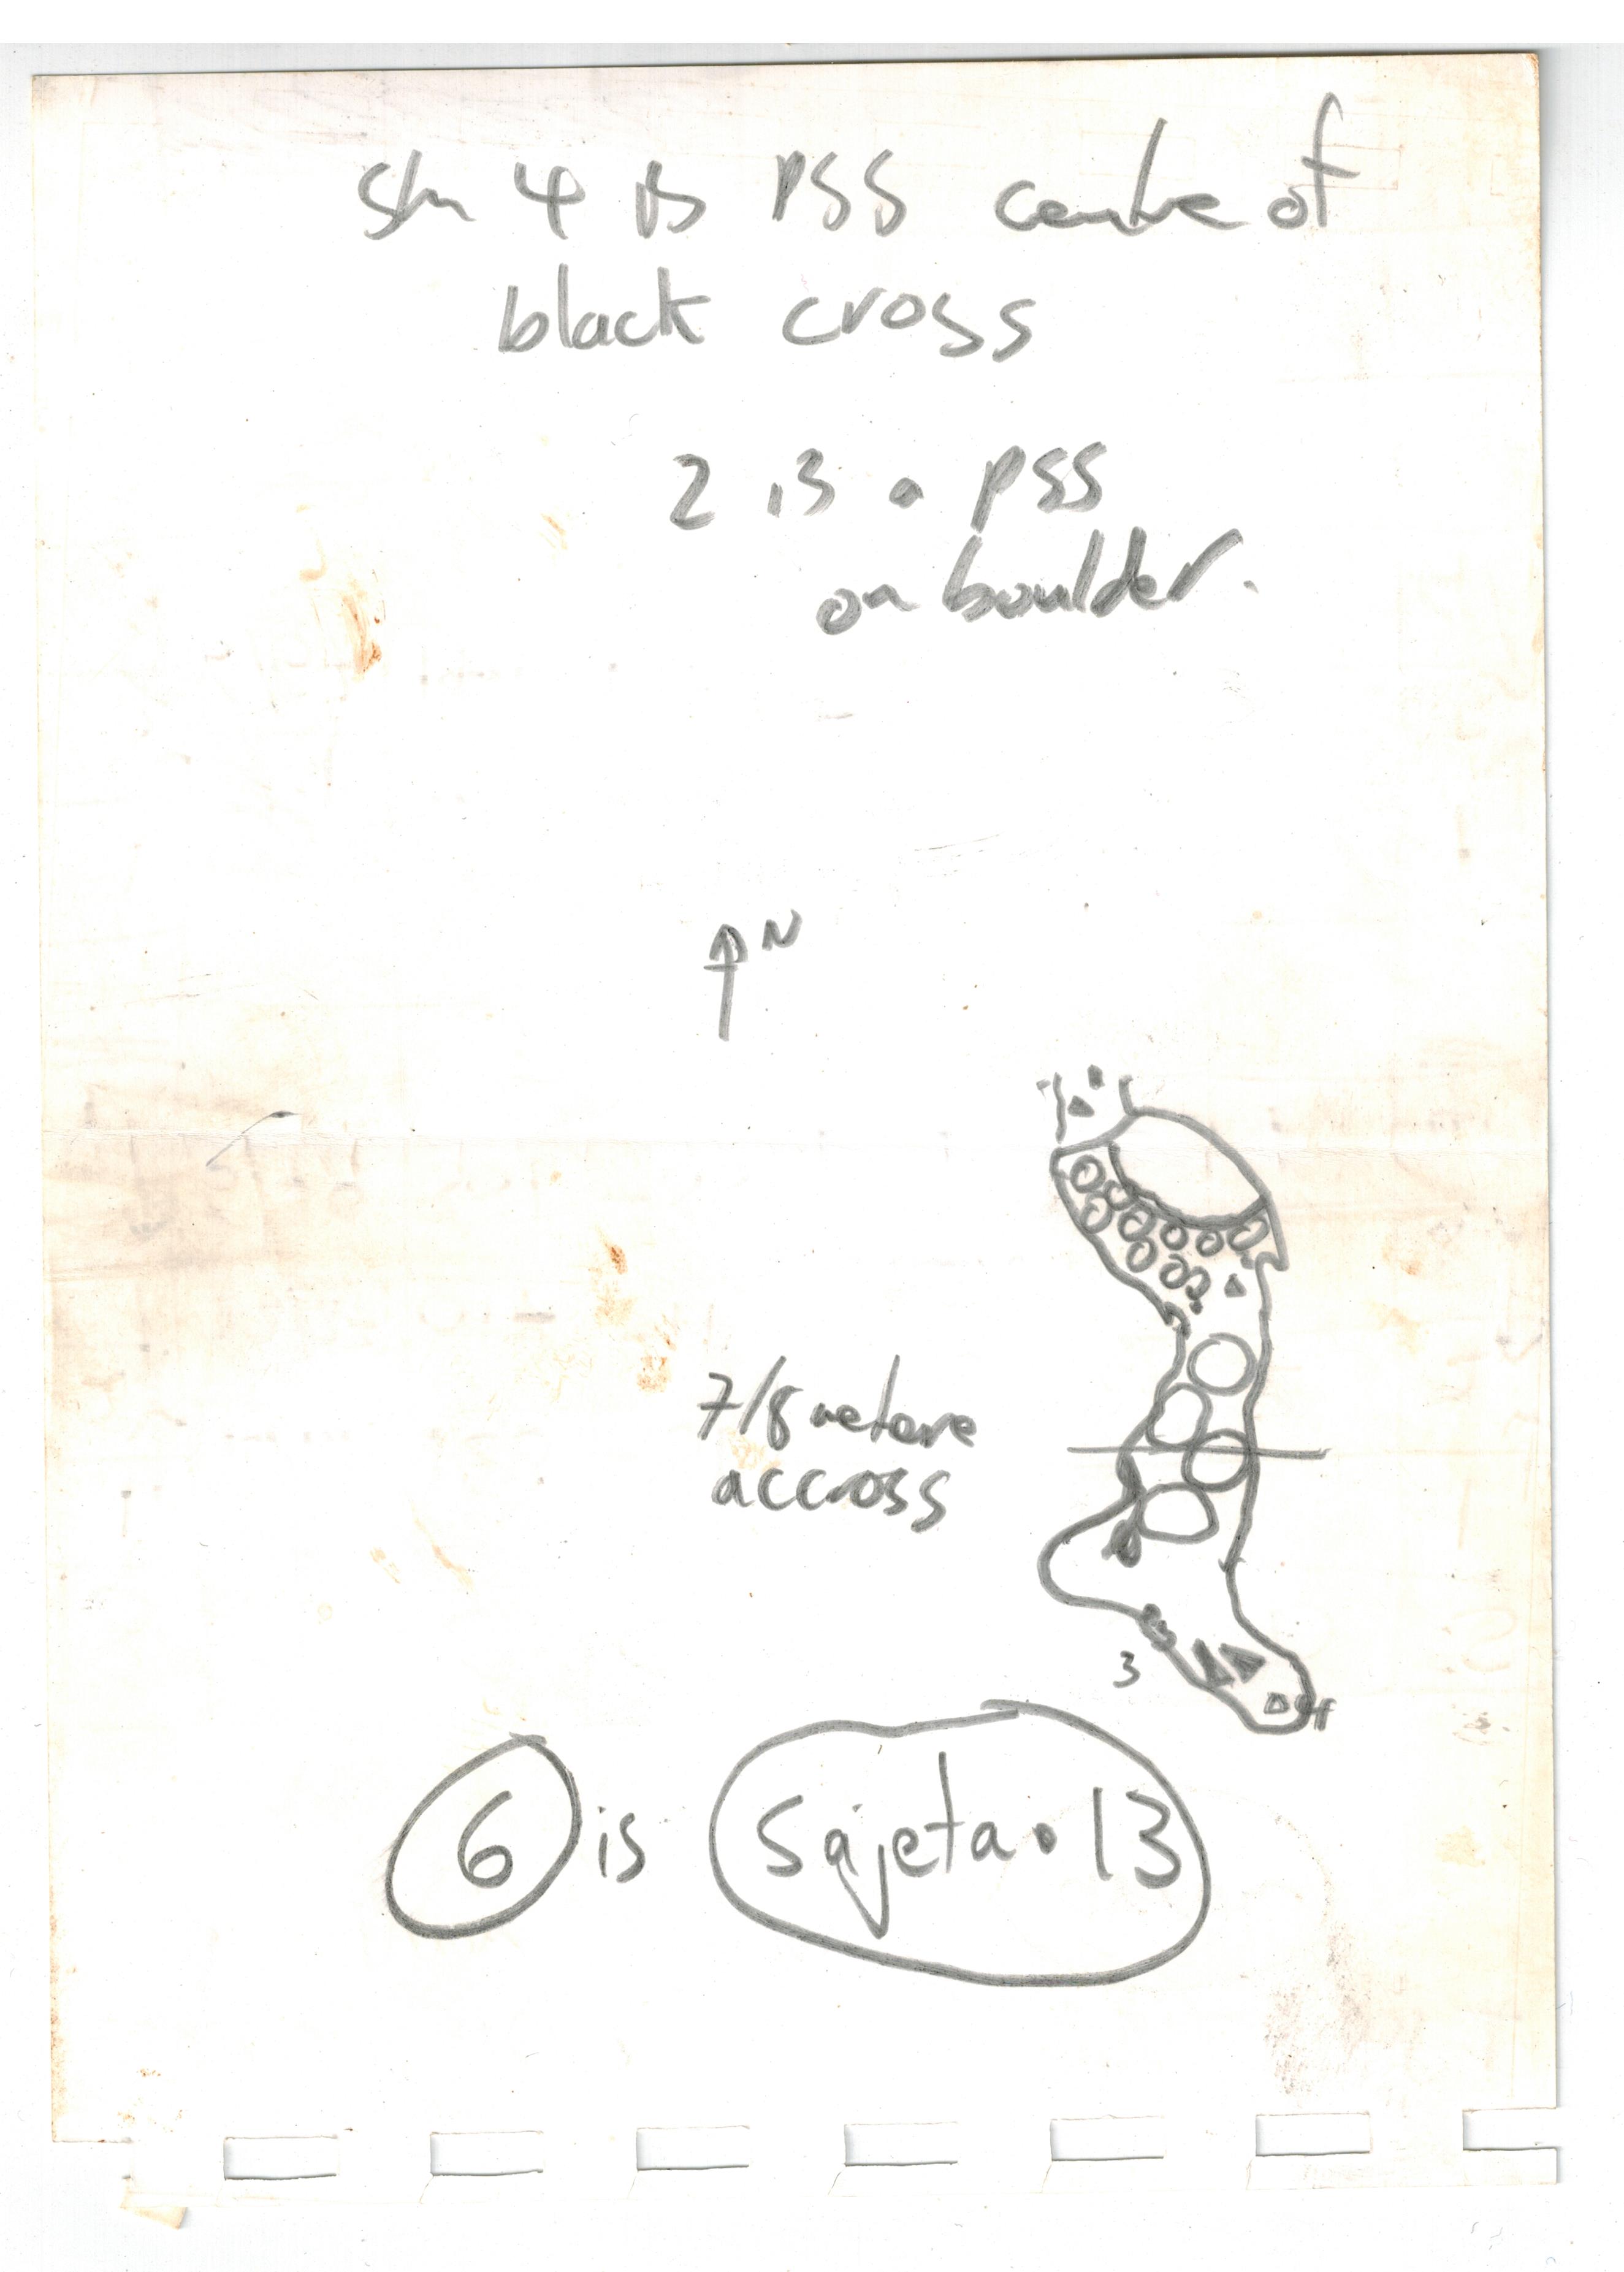 Stn 4 is PSS centre of
black cross
2 is a PSS
on boulder.
N
7/8 metere
accross
3
4
6 is Sajeta.13